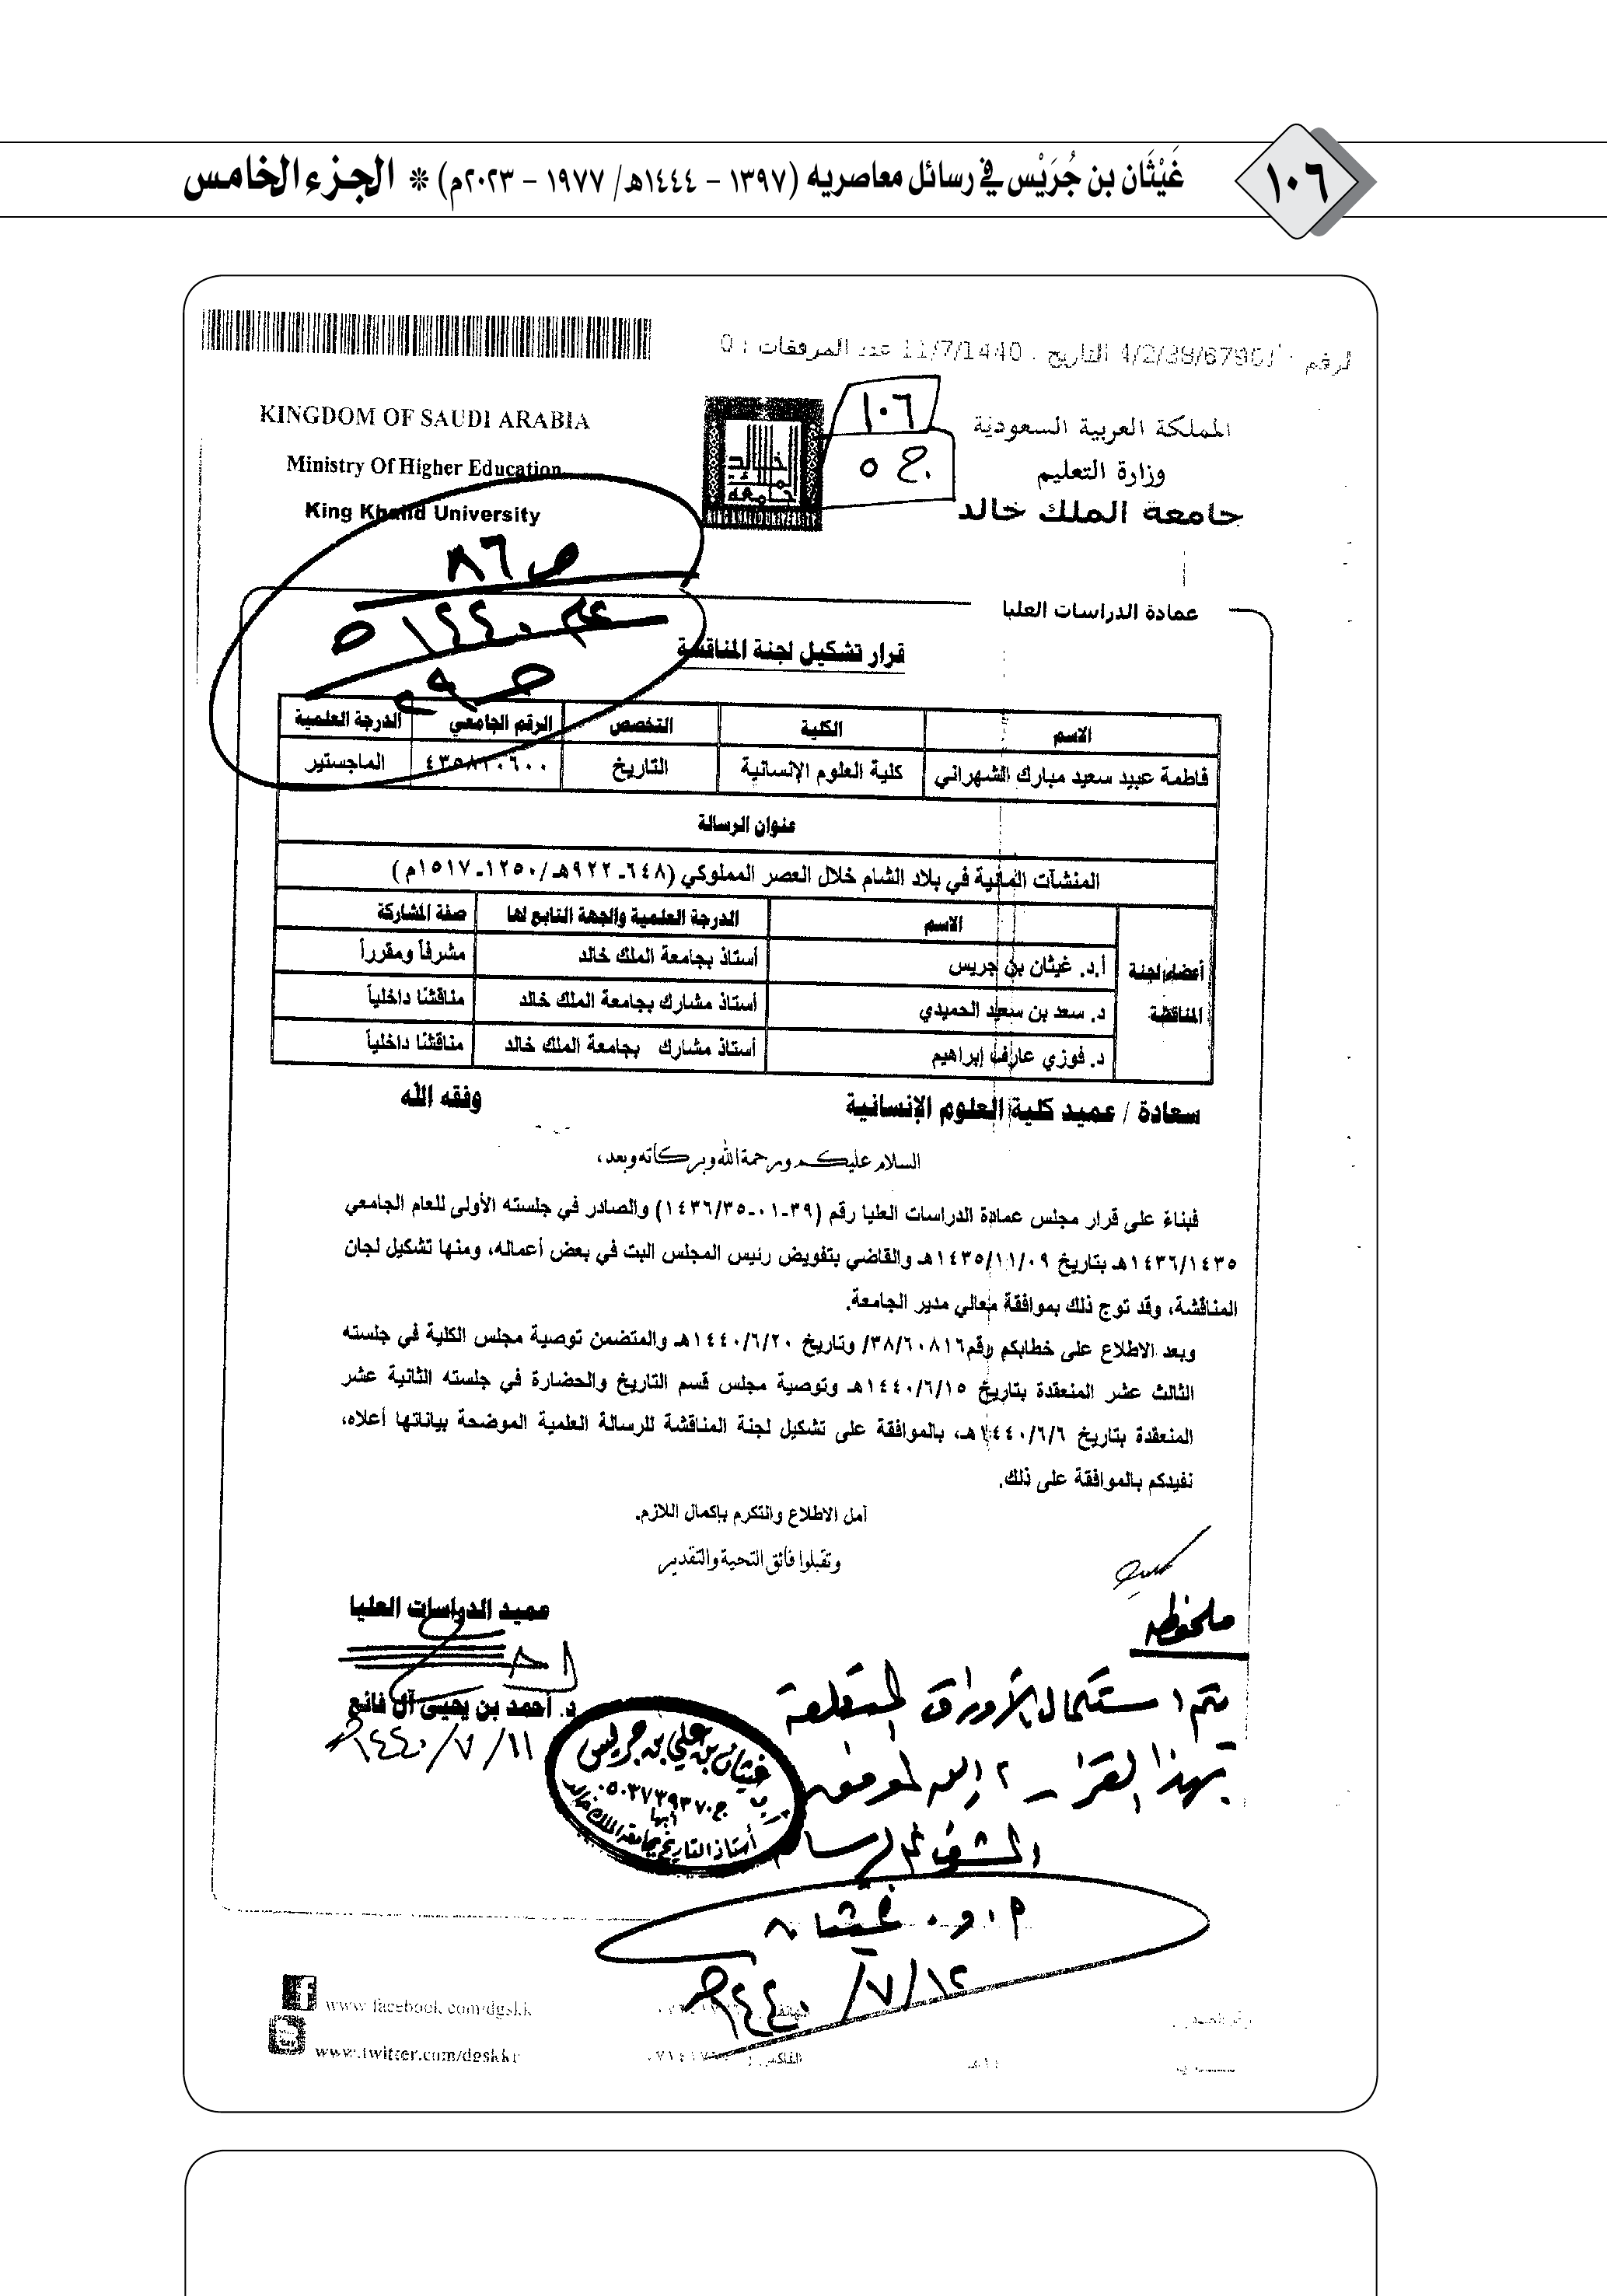 ١٠٦
غَيْثَان بن جُرَيْس في رسائل معاصريه (١٣٩٧ – ١٤٤٤هـ/ ١٩٧٧ – ٢٠٢٣م) ❊ الجزء الخامس
التاريخ : 11/7/1440 عدد المرفقات : 0
١٠٦
ج ٥
المملكة العربية السعودية
وزارة التعليم
جامعة الملك خالد
KINGDOM OF SAUDI ARABIA
Ministry Of Higher Education
King Khalid University
ص ٨٦
عمادة الدراسات العليا
قرار تشكيل لجنة المناقشة
الاسم الكلية التخصص الرقم الجامعي الدرجة العلمية
فاطمة عبيد سعيد مبارك الشهراني كلية العلوم الإنسانية التاريخ ٤٣٥٨١٠٦٠٠ الماجستير
عنوان الرسالة
المنشآت المائية في بلاد الشام خلال العصر المملوكي (٦٤٨ـ ٩٢٢هـ /١٢٥٠ـ ١٥١٧م )
أعضاء لجنة المناقشة
الاسم الدرجة العلمية والجهة التابع لها صفة المشاركة
أ.د. غيثان بن جريس أستاذ بجامعة الملك خالد مشرفاً ومقرراً
د. سعد بن سعيد الحميدي أستاذ مشارك بجامعة الملك خالد مناقشا داخلياً
د. فوزي عارف إبراهيم أستاذ مشارك بجامعة الملك خالد مناقشا داخلياً
سعادة / عميد كلية العلوم الإنسانية وفقه الله
السلام عليكم ورحمة الله وبركاته وبعد،
فبناءً على قرار مجلس عمادة الدراسات العليا رقم (٣٩-٠١-١٤٣٦/٣٥) والصادر في جلسته الأولى للعام الجامعي
١٤٣٦/١٤٣٥هـ بتاريخ ١٤٣٥/١١/٠٩هـ والقاضي بتفويض رئيس المجلس البت في بعض أعماله، ومنها تشكيل لجان
المناقشة، وقد توج ذلك بموافقة معالي مدير الجامعة.
وبعد الاطلاع على خطابكم رقم٣٨/٦٠٨١٦/ وتاريخ ١٤٤٠/٦/٢٠هـ والمتضمن توصية مجلس الكلية في جلسته
الثالث عشر المنعقدة بتاريخ ١٤٤٠/٦/١٥هـ وتوصية مجلس قسم التاريخ والحضارة في جلسته الثانية عشر
المنعقدة بتاريخ ١٤٤٠/٦/٦هـ، بالموافقة على تشكيل لجنة المناقشة للرسالة العلمية الموضحة بياناتها أعلاه،
نفيدكم بالموافقة على ذلك.
آمل الاطلاع والتكرم بإكمال اللازم.
وتقبلوا فائق التحية والتقدير
عميد الدراسات العليا
د. أحمد بن يحيى آل فائع
١٤٤٠/٧/١١هـ
ملحوظة
يتم استكمال الأوراق المتعلقة
بهذا القرار والله الموفق
المشرف على الرسالة
أ.د. غيثان
١٤٤٠/٧/١٢هـ
غيثان بن علي بن جريس
ج٠٥٠٣٧٣٩٣٧٠
أبها
أستاذ التاريخ بجامعة الملك خالد
www.facebook.com/dgskk
www.twitter.com/dgskkr
الفاكس :